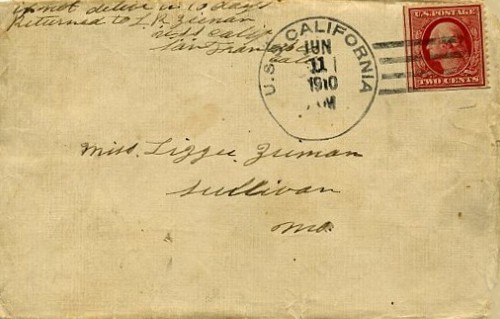 not delive in 10 days
Returned to L.R. Zuman
USS Califo
San Francisco
Calif
U.S. CALIFORNIA
JUN
11
1910
M
U.S. POSTAGE
TWO CENTS
Miss. Lizzie Zuman
Sullivan
Mo.